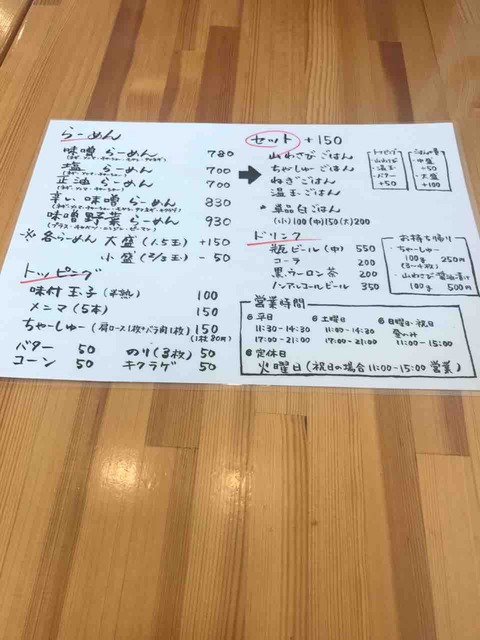 らーめん
味噌 らーめん 780
塩 らーめん 700
正油 らーめん 700
辛い 味噌 らーめん 830
味噌野菜 らーめん 930
※ 各らーめん 大盛(1.5玉) +150
小盛(2/3玉) - 50
トッピング
味付 玉子(半熟) 100
メンマ(5本) 150
ちゃーしゅー(肩ロース1枚+バラ肉1枚) 150
(1枚80円)
バター 50 のり(3枚) 50
コーン 50 キクラゲ 50
セット +150
山わさびごはん
ちゃーしゅーごはん
ねぎごはん
温玉ごはん
* 単品白ごはん
(小)100(中)150(大)200
トッピング
山わさび
・温玉
・バター
+50
ごはんの量
・中盛
+50
・大盛
+100
ドリンク
瓶ビール(中) 550
コーラ 200
黒ウーロン茶 200
ノンアルコールビール 350
お持ち帰り
・ちゃーしゅー
100g 250円
(3~4枚)
・山わさび醤油漬け
100g 500円
営業時間
平日
11:30-14:30
17:00-21:00
土曜日
11:00-14:30
17:00-21:00
日曜日・祝日
昼のみ
11:00-15:00
定休日
火曜日(祝日の場合11:00-15:00 営業)